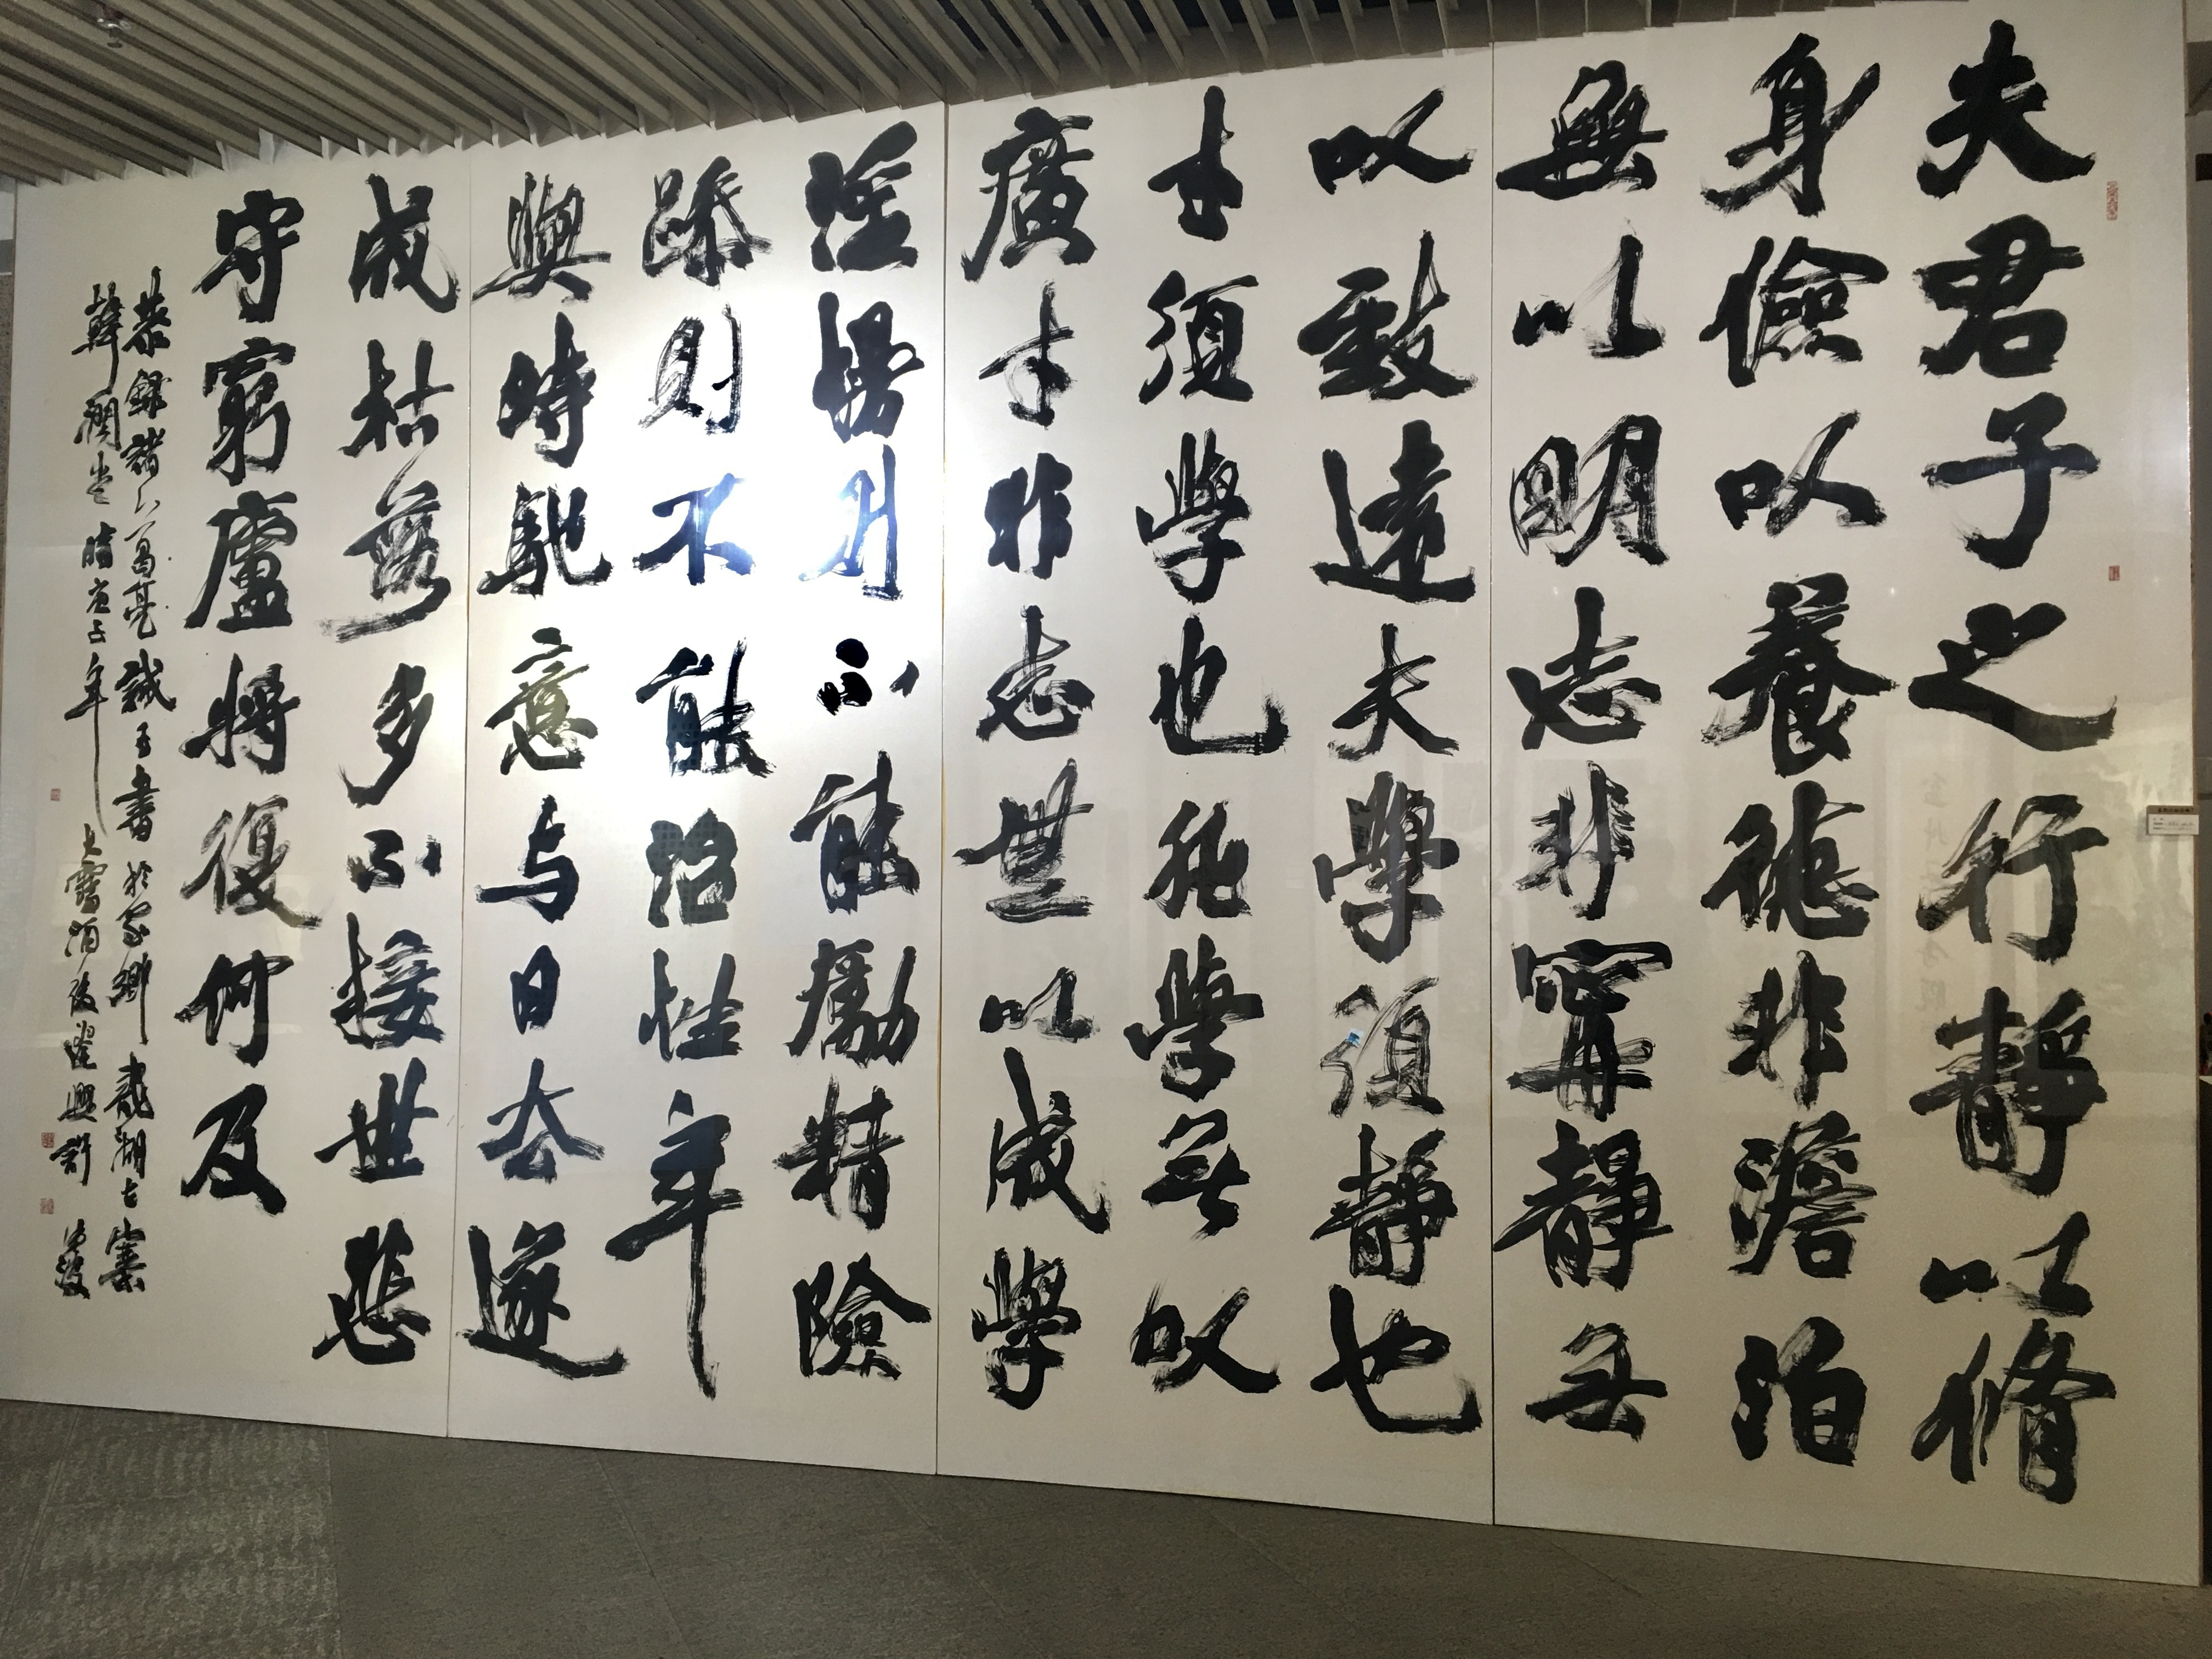 夫君子之行靜以脩
身儉以養德非澹泊
無以明志非寧靜無
以致遠夫學須靜也
才須學也非學無以
廣才非志無以成學
淫慢則不能勵精險
躁則不能治性年
與時馳意与日去遂
成枯落多不接世悲
守窮廬將復何及
恭錄諸葛亮誡子書於家鄉龍湖古寨
時庚子年大雪酒後逞興許